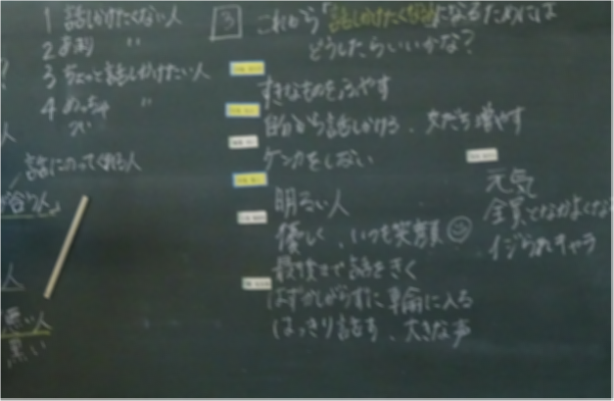 1 話しかけたくない人
2 あまり 〃
3 ちょっと話しかけたい人
4 めっちゃ 〃
話にのってくれる人
人
悪い人
黒い
3 これから「話しかけたくなる」になるためには
どうしたらいいかな?
すきなものをふやす
自分から話しかける、友だち増やす
ケンカをしない
明るい人
優しく、いつも笑顔
最後まで話をきく
はずかしがらずに 輪に入る
はっきり話す、大きな声
元気
全員となかよくな
イジられキャラ